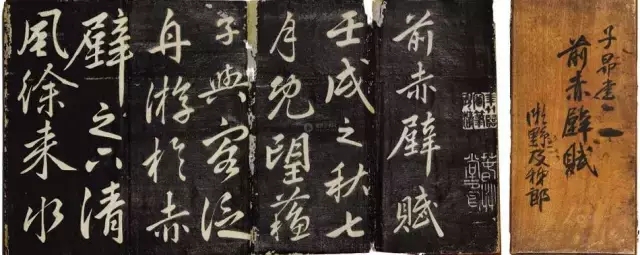 子昂書
前赤壁賦
前赤壁賦
壬戌之秋七
月既望蘇
子與客泛
舟游於赤
壁之下清
風徐来水